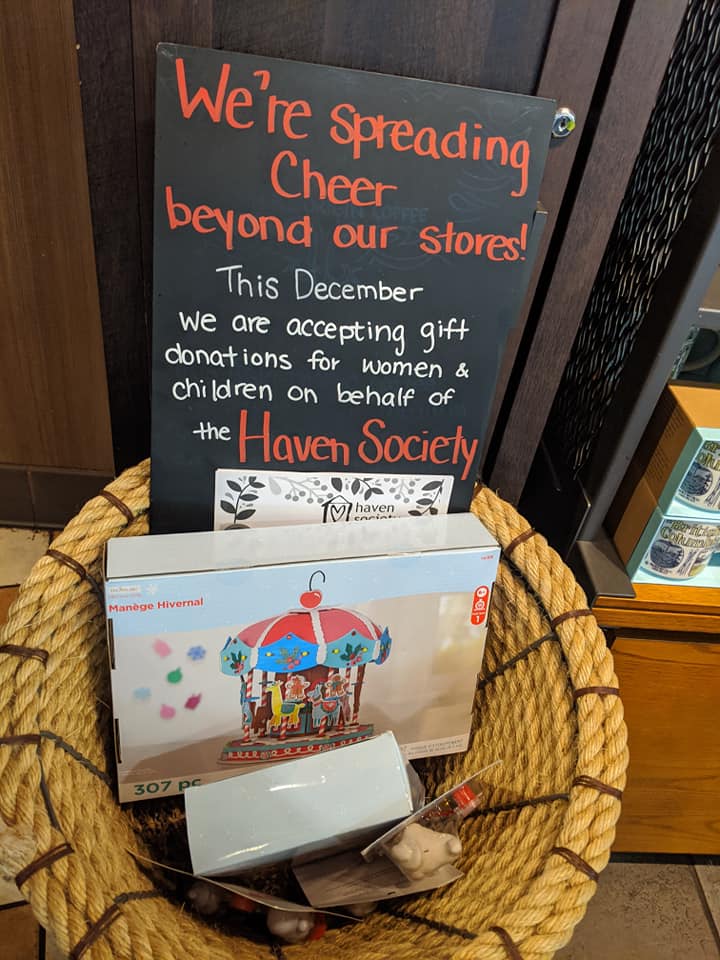 We're spreading
Cheer
beyond our stores!
This December
we are accepting gift
donations for women &
children on behalf of
the Haven Society
haven
society
Manège Hivernal
1
307 pc
British
Columbia